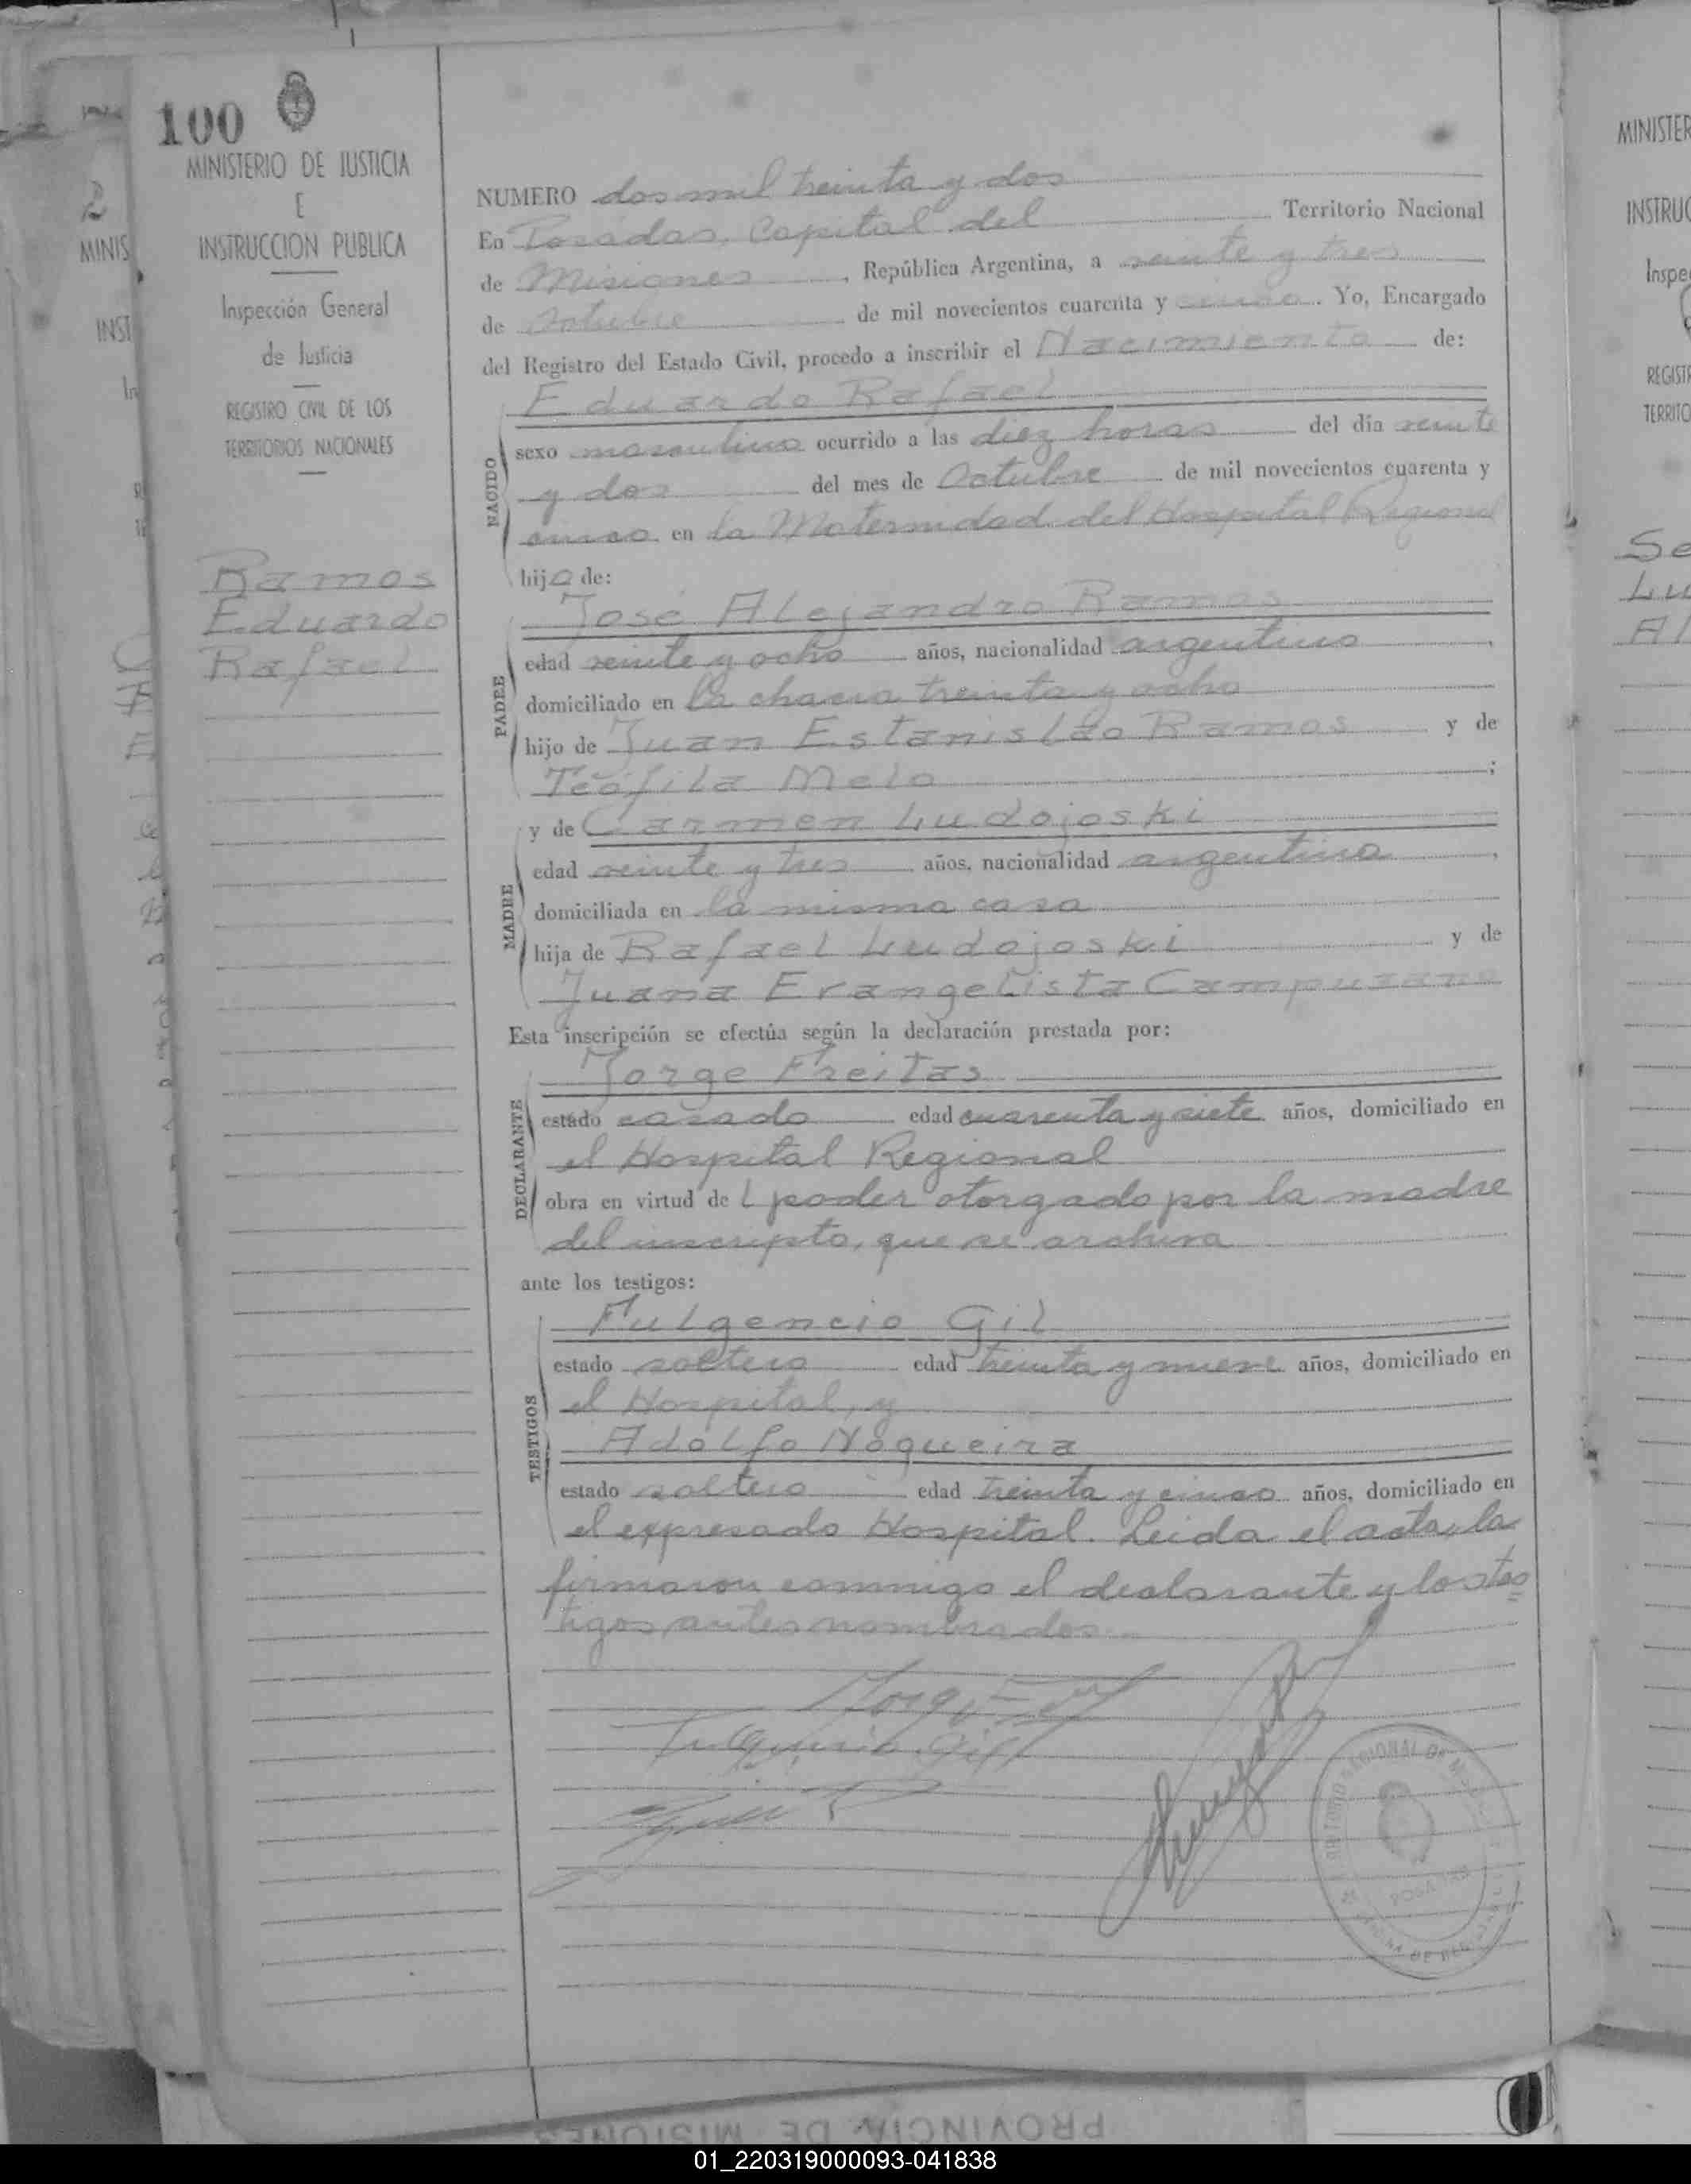 100
MINISTERIO DE JUSTICIA
E
INSTRUCCION PUBLICA
Inspección General
de Justicia
REGISTRO CIVIL DE LOS
TERRITORIOS NACIONALES
Ramos
Eduardo
Rafael
NUMERO dos mil treinta y dos
En Posadas, Capital del Territorio Nacional
de Misiones, República Argentina, a veinte y tres
de octubre de mil novecientos cuarenta y cinco. Yo, Encargado
del Registro del Estado Civil, procedo a inscribir el Nacimiento de:
Eduardo Rafael
NACIDO
sexo masculino ocurrido a las diez horas del día veinte
y dos del mes de Octubre de mil novecientos cuarenta y
cinco en la Maternidad del Hospital Regional
hijo de:
José Alejandro Ramos
PADRE
edad veinte y ocho años, nacionalidad argentino,
domiciliado en la chacra treinta y ocho
hijo de Juan Estanislao Ramos y de
Teófila Melo;
y de Carmen Ludojoski
MADRE
edad veinte y tres años, nacionalidad argentina,
domiciliada en la misma casa
hija de Rafael Ludojoski y de
Juana Evangelista Campuzano
Esta inscripción se efectúa según la declaración prestada por:
Jorge Freitas
DECLARANTE
estado casado edad cuarenta y siete años, domiciliado en
el Hospital Regional
obra en virtud del poder otorgado por la madre
del inscripto, que se archiva
ante los testigos:
Fulgencio Gil
TESTIGOS
estado soltero edad treinta y nueve años, domiciliado en
el Hospital, y
Adolfo Nogueira
estado soltero edad treinta y cinco años, domiciliado en
el expresado Hospital. Leida el acta, la
firmaron conmigo el declarante y los tes=
tigos antes nombrados.
Fulgencio Gil
POSADAS
MINISTER
INSTRUC
Inspe
REGISTR
TERRITO
Se
Lu
Al
2
MINIS
INST
In
PROVINCIA DE MISIONES
01_220319000093-041838